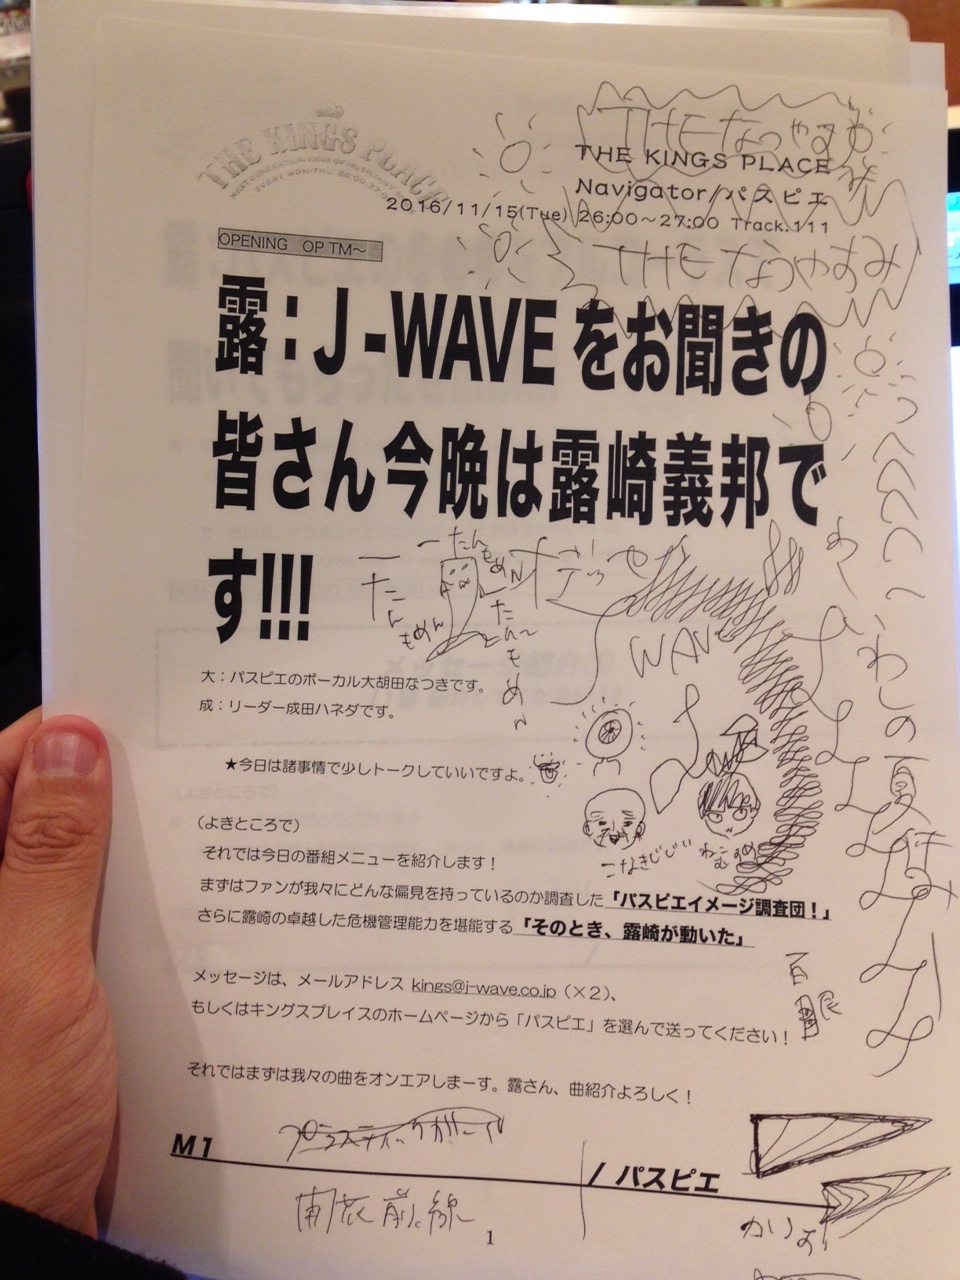 THE KINGS PLACE
THE なつやすみ
THE KINGS PLACE
Navigator/パスピエ
2016/11/15(Tue) 26:00～27:00 Track.111
THE なつやすみ
OPENING OP TM～
露：J-WAVEをお聞きの
皆さん今晩は露崎義邦で
す!!!
一たんもめん
一たんもめん
一たんもめん
WAVE
わしの夏休み
大：パスピエのボーカル大胡田なつきです。
成：リーダー成田ハネダです。
★今日は諸事情で少しトークしていいですよ。
こなきじじい
ねこむすめ
（よきところで）
それでは今日の番組メニューを紹介します！
まずはファンが我々にどんな偏見を持っているのか調査した「パスピエイメージ調査団！」
さらに露崎の卓越した危機管理能力を堪能する「そのとき、露崎が動いた」
百目
メッセージは、メールアドレス kings@j-wave.co.jp（×2）、
もしくはキングスプレイスのホームページから「パスピエ」を選んで送ってください！
それではまずは我々の曲をオンエアしまーす。露さん、曲紹介よろしく！
M1 プラスティックガール / パスピエ
前線
1